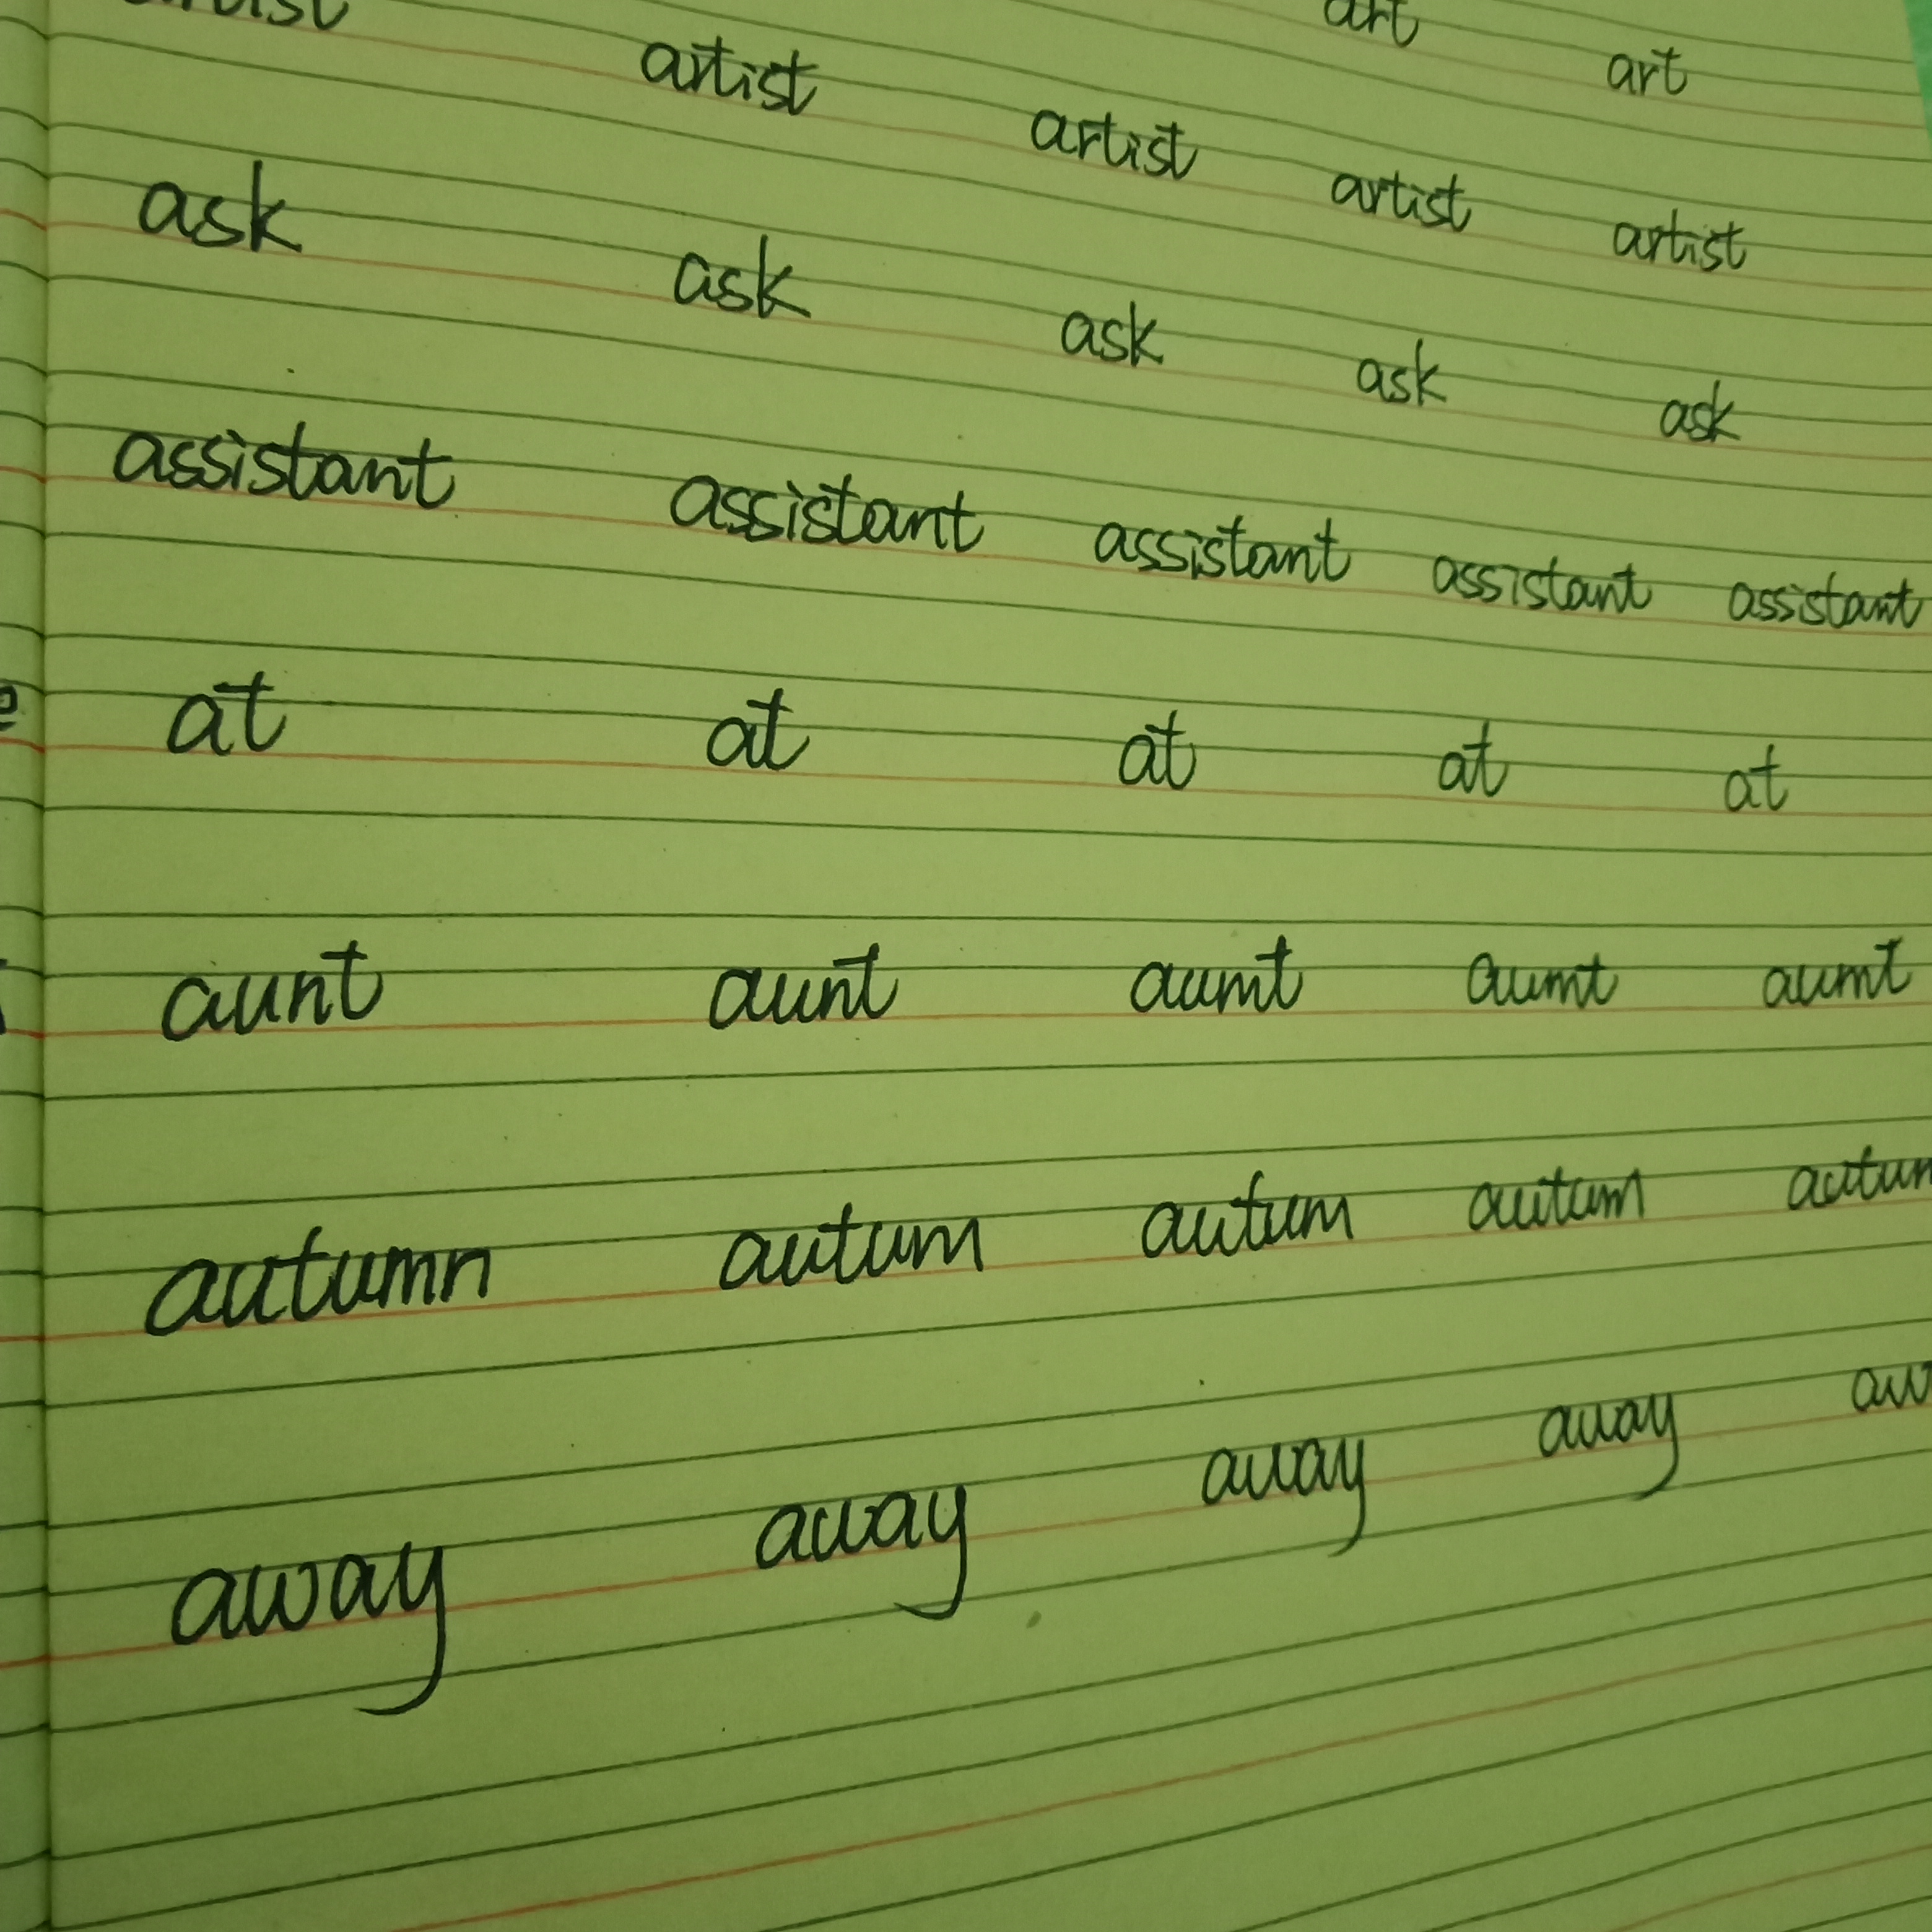 art art
artist artist artist artist artist
ask ask ask ask ask
assistant assistant assistant assistant assistant
at at at at at
aunt aunt aumt aumt aumt
autumn autum autum autum
away away away away